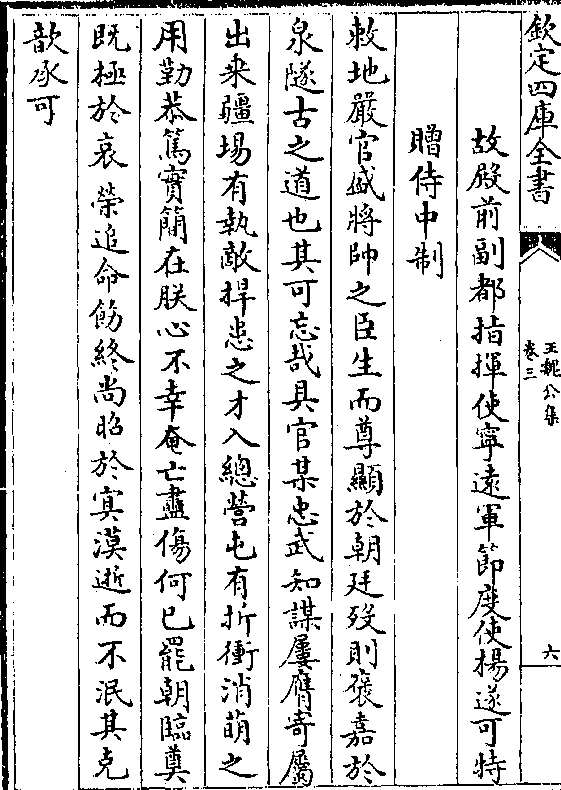 欽定四庫全書
王魏公集
卷三
六
故殿前副都指揮使寧遠軍節度使楊遂可特
贈侍中制
敕地嚴官盛將帥之臣生而尊顯於朝廷歿則襃嘉於
泉隧古之道也其可忘哉具官某忠武知謀屢膺寄屬
出乗疆埸有執敵捍患之才入總營屯有折衝消萌之
用勤恭篤實簡在朕心不幸奄亡盡傷何已罷朝臨奠
既極於哀榮追命飭終尚昭於寘漠逝而不泯其克
歆承可